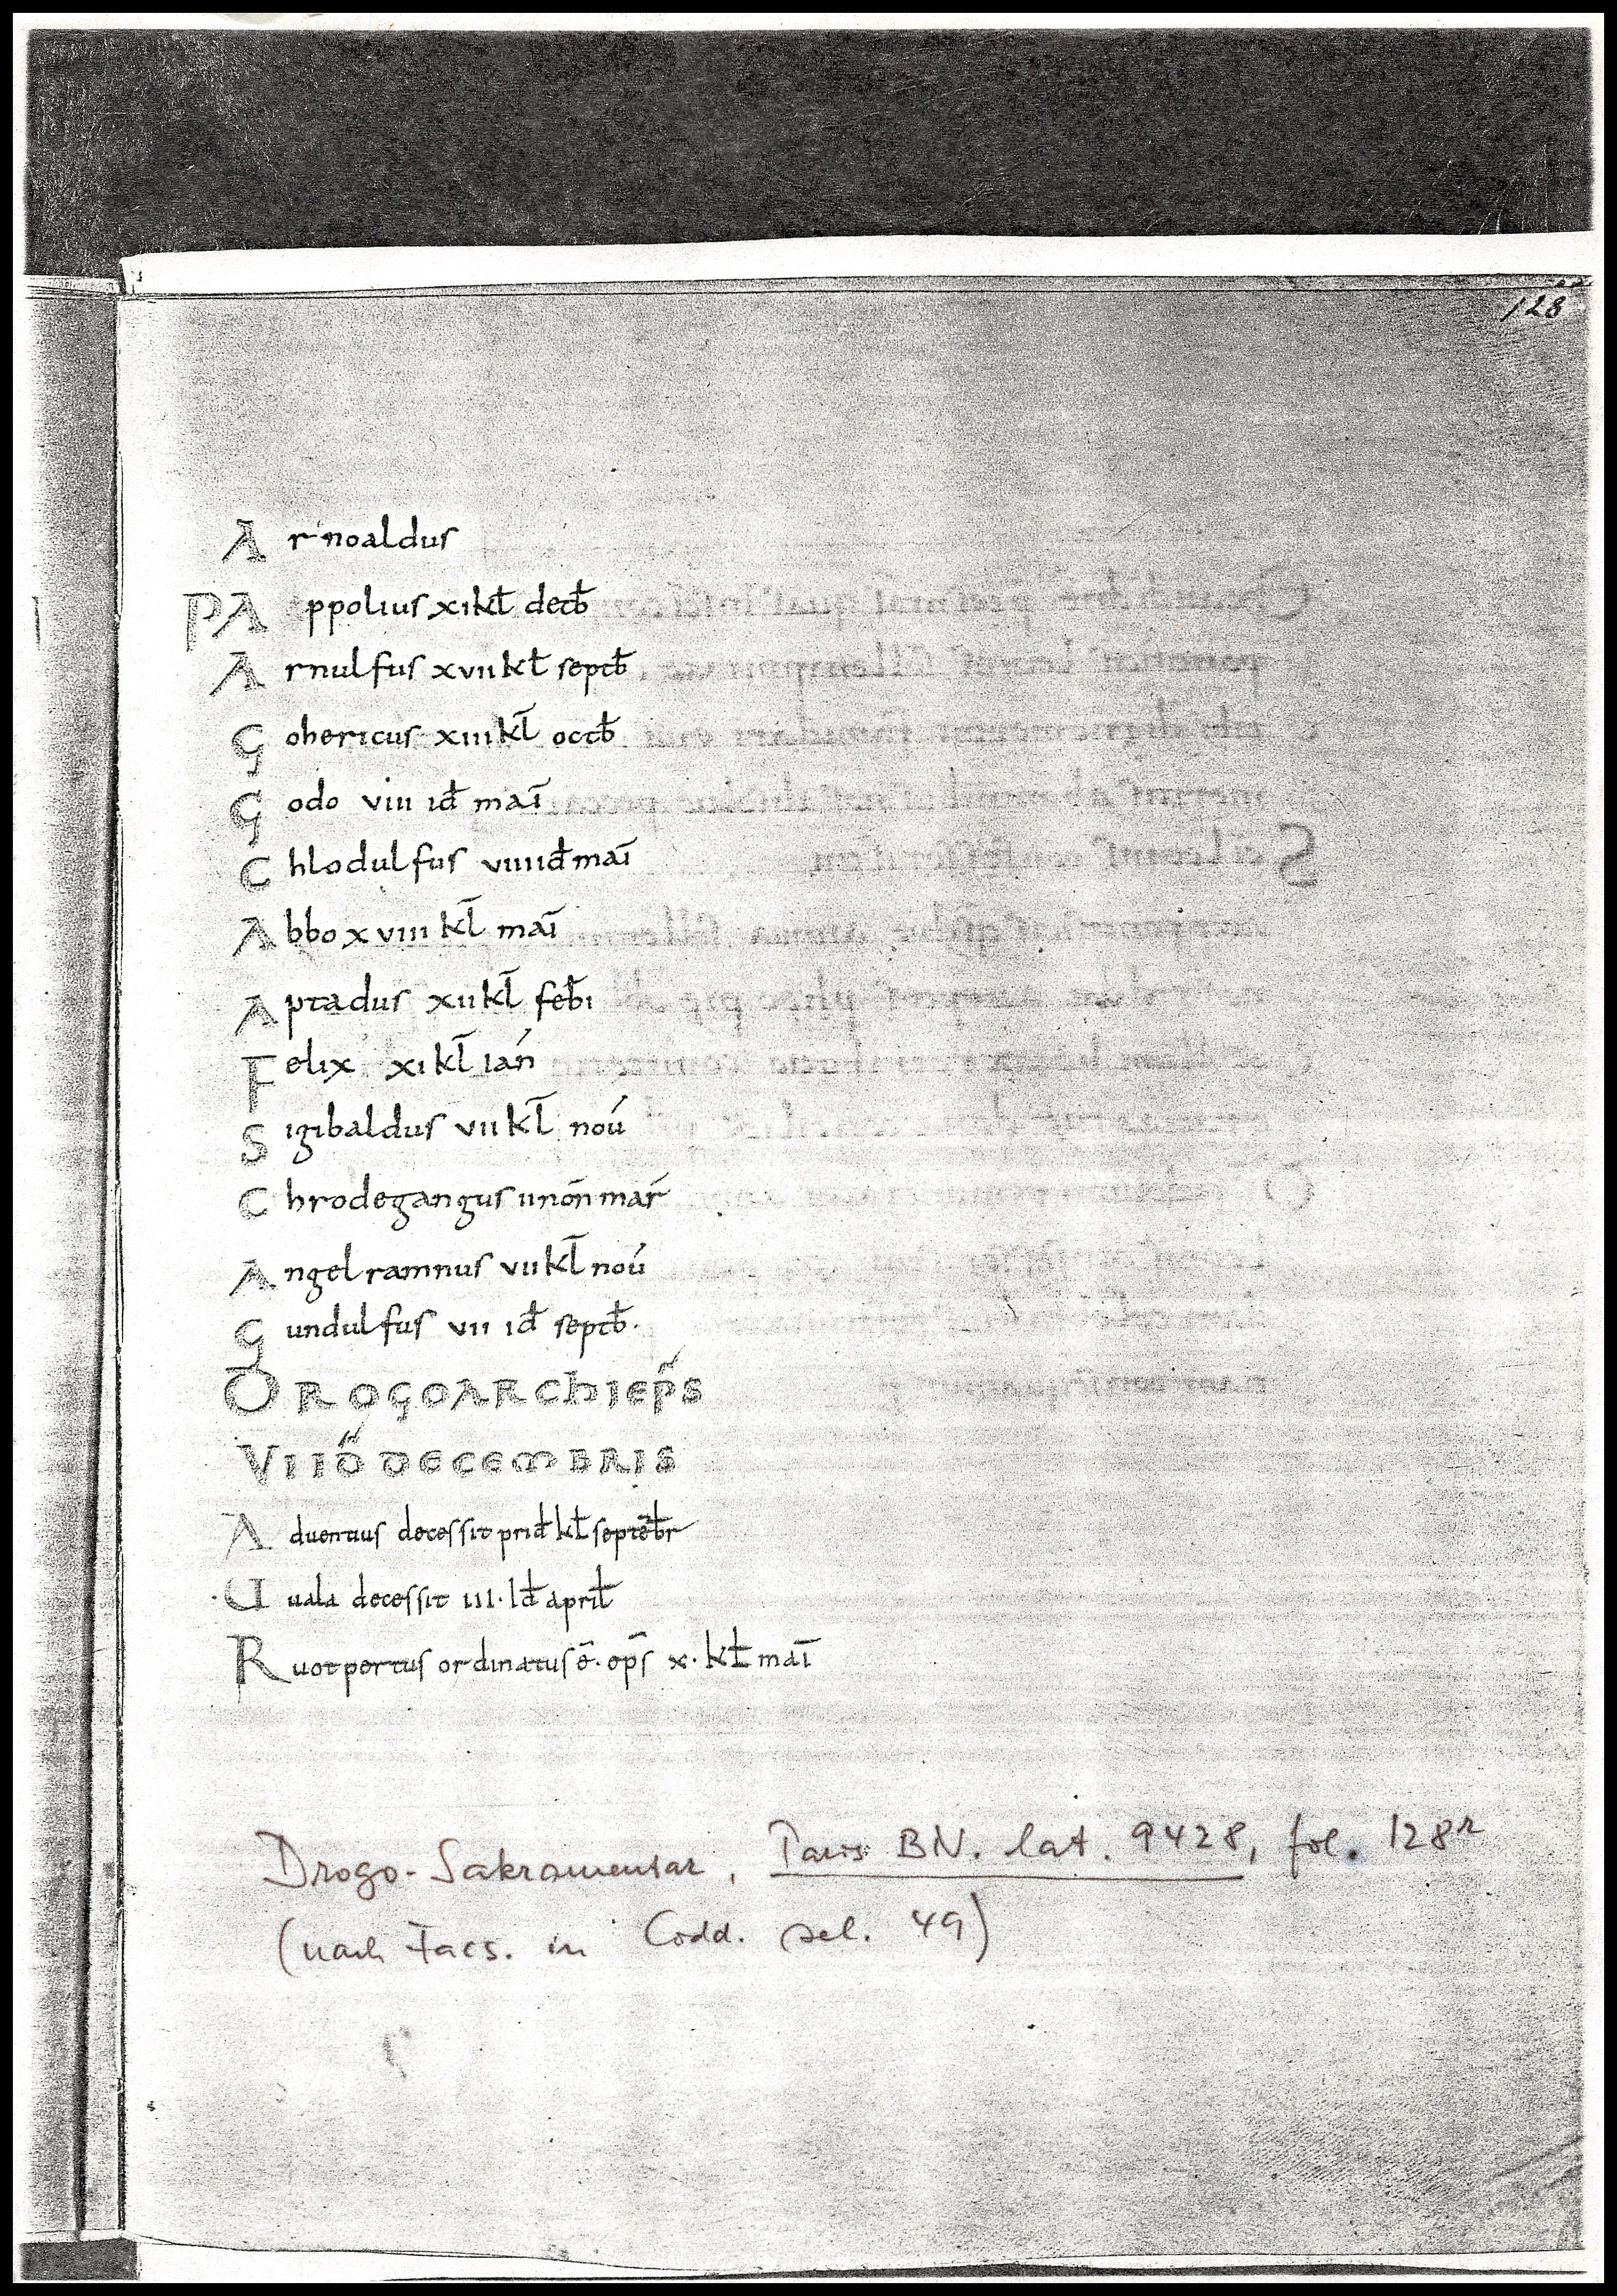 128
Arnoaldus
PAppolius xi kł decb̄
Arnulfus xvii kł septb̄
Gohericus xiii kl̄ octb̄
Godo viii id̄ maī
Chlodulfus viiii id̄ maī
Abbo xviii kl̄ maī
Aptadus xii kl̄ feb̄i
Felix xi kl̄ ian̄
Sigibaldus vii kl̄ nov́
Chrodegangus ii nōn mar̄
Angelramnus vii kl̄ nov́
Gundulfus vii id̄ septb̄.
DROGO ARCHIEP̄S
VI ID̄ DECEMBRIS
Aduentius decessit prid̄ kł septēb̄r
·Uuala decessit iii· id̄ aprił
Ruotpertus ordinatus ē· ep̄s x· kł maī
Drogo-Sakramentar, Paris BN. lat. 9428, fol. 128r
(nach Facs. in Codd. sel. 49)